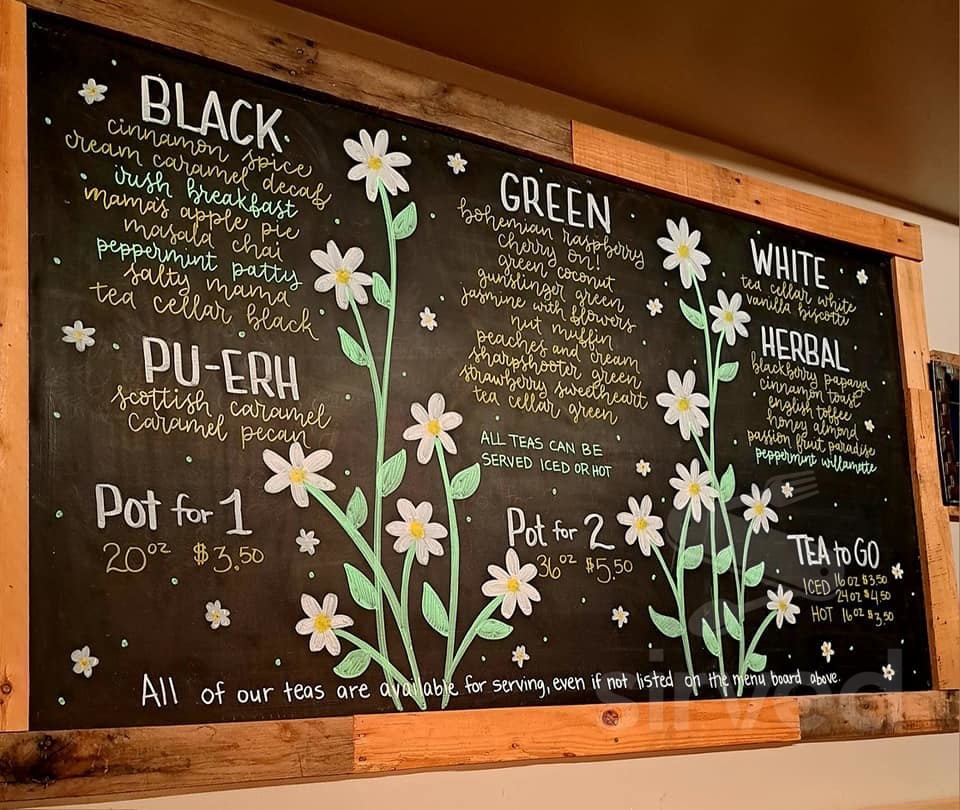 BLACK
cinnamon spice
cream caramel decaf
irish breakfast
mama's apple pie
masala chai
peppermint patty
salty mama
tea cellar black
PU-ERH
scottish caramel
caramel pecan
Pot for 1
20oz $3.50
GREEN
bohemian raspberry
cherry on!
green coconut
gunslinger green
jasmine with flowers
nut muffin
peaches and cream
sharpshooter green
strawberry sweetheart
tea cellar green
ALL TEAS CAN BE
SERVED ICED OR HOT
Pot for 2
36oz $5.50
WHITE
tea cellar white
vanilla biscotti
HERBAL
blackberry papaya
cinnamon toast
english toffee
honey almond
passion fruit paradise
peppermint willamette
TEA to GO
ICED 16oz $3.50
24oz $4.50
HOT 16oz $3.50
All of our teas are available for serving, even if not listed on the menu board above.
sirved